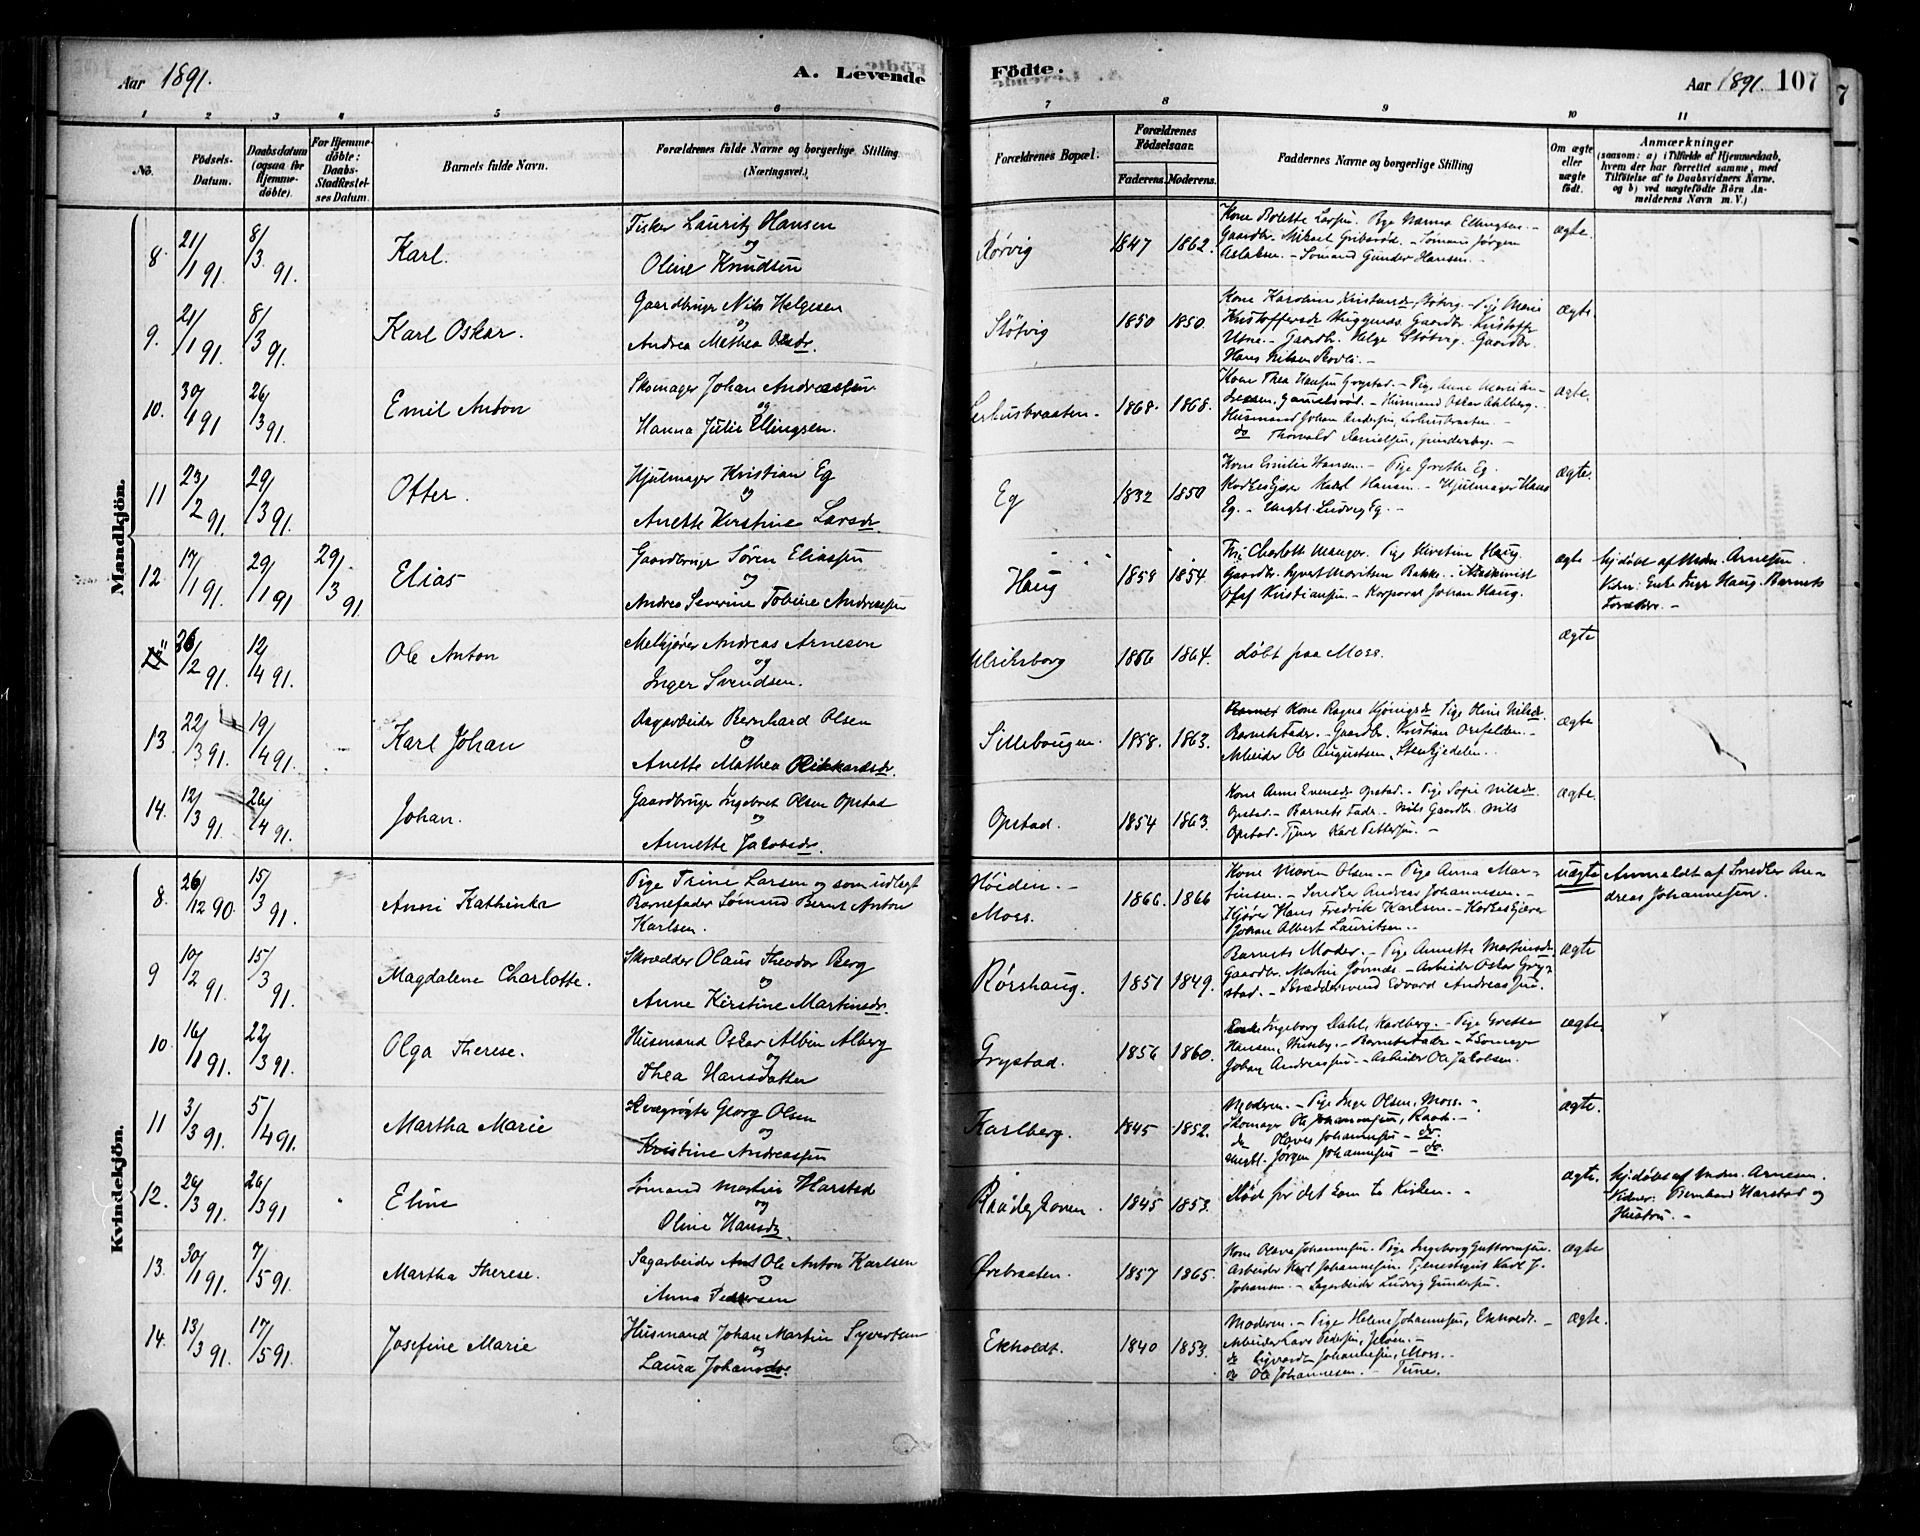 Aar 1891.
A. Levende
Fødte.
Aar 1891. 107
1 2 3 4 5 6 7 8 9 10 11
No.
Födsels-Datum.
Daabsdatum (ogsaa for Hjemme-döbte).
For Hjemme-döbte: Daabs-Stadfæstel-ses Datum.
Barnets fulde Navn.
Forældrenes fulde Navne og borgerlige Stilling
(Næringsvei.)
Forældrenes Bopæl.
Forældrenes Fødselsaar.
Faderens. Moderens.
Faddernes Navne og borgerlige Stilling
Om ægte eller uægte födt.
Anmærkninger
(saasom: a) i Tilfælde af Hjemmedaab,
hvem der har forrettet samme, med
Tilföielse af to Daabsvidners Navne.
og b) ved uægtefödte Börn An-
melderens Navn m. V.)
Mandkjön.
8. 21/1 91. 8/3 91. Karl.
Fisker Lauritz Hansen
og
Oline Knudsen
Rørvig 1847 1862.
Kone Bolette Larsen. Pige Nanna Ellingsen. -
Gaardbr. Mikael Gribsrød. - Sømand Jørgen
Aslaksen. - Sømand Gunder Hansen. -
ægte.
9. 21/1 91. 8/3 91. Karl Oskar.
Gaardbruger Nils Helgesen
og
Andrea Mathea Olsdr.
Støtvig 1850 1850.
Kone Karoline Kristiansdr, Støtvig. - Pige Marie
Kristoffersdr Gaardbr. Kristoffer
Gaardbr. Helge Støtvig. Gaardbr.
Hans Nilsen -
ægte
10. 30/1 91 26/3 91. Emil Anton
Skomager Johan Andreassen
og
Hanna Julie Ellingsen.
1868. 1868.
Kone Thea Hansen Grystad. - Pige Anne Marie An-
dresen, - Husmand Oskar Ahlberg.
Husmand Johan Andersen, -
do Thorvald Danielsen, -
ægte.
11 23/2 91. 29/3 91. Otter.
Hjulmager Kristian Eg
og
Anette Kirstine Larsdr
Eg 1832 1850
Kone Emilie Hansen. - Pige Grethe Eg.
Karl Hansen - Hjulmager Hans
Eg. - Ungkl. Ludvig Eg. -
ægte.
12 17/1 91. 29/1 91 29/3 91. Elias
Gaardbruger Søren Eliassen
og
Andrea Severine Tobine Andreasen
Haug 1859 1854.
Fru Charlott Manger. Pige Kirstine Haug.
Gaardbr. Syvert Moritsen Bakke. - Maskinist
Olaf Kristiansen. - Korporal Johan Haug.
ægte
hj.døbt af Arnesen
Vidn: Enke Haug. Barnets
Forældre. -
26/2 91. 12/4 91. Ole Anton
Melkjører Andreas Arnesen
og
Inger Svendsen.
Ulriksborg 1866 1864.
døbt paa Moss.
ægte
13. 22/3 91. 19/4 91. Karl Johan
Dagarbeider Bernhard Olsen
og
Anette Mathea Rikkardsdr.
Sillebaugen. 1858. 1863.
Kone Ragna Pige Oline Nilsdr.
Barnets Fader. - Gaardbr. Kristian -
Arbeider Ole Augustsen,
ægte
14. 12/3 91. 26/4 91. Johan.
Gaardbruger Ingebret Olsen Opstad
og
Annette Jacobsdr.
Opstad. 1854 1863.
Kone Anne Evensdr Opstad. - Pige Sofie Nilsdr
Opstad. - Barnets Fader. - Nils Gaardbr. Nils
Opstad. - Tjener Karl Pettersen. -
ægte.
Kvindekjön.
8. 26/12 90. 15/3 91. Anni Kathinka
Pige Trine Larsen og som udlagt
Barnefader Sømand Bernt Anton
Karlsen.
Høiden. -
Moss. 1866. 1866
Kone Maren Olsen. - Pige Anna Mar-
tinsen. - Snedker Andreas Johannesen. -
Kjører Hans Fredrik Karlsen. -
Johan Albert Lauritsen. -
uægte
Anmeldt af Snedker An-
dreas Johannesen.
9 10/2 91. 15/3 91. Magdalene Charlotte.
Skrædder Olaus Theodor Berg
og
Anne Kirstine Martinsdr.
Rørshaug. 1851 1849.
Barnets Moder. - Pige Annette Martinsdr
Gaardbr. Martin - Arbeider Oskar Gry-
stad. - Skræddersvend Edvard Andreassen.
ægte
10. 16/1 91. 22/3 91. Olga Therese.
Husmand Oskar Albin Alberg
og
Thea Hansdatter
Grystad. 1856 1860.
Enke Ingeborg Dahl, Karlberg. - Pige Grethe
Hansen, - Barnets Fader. - Skomager
Johan Andreassen. - Arbeider Ole Jacobsen.
ægte.
11 3/3 91. 5/4 91. Martha Marie
Kvægrøgter Georg Olsen
og
Kristine Andreassen
Karlberg. 1845 1852.
Moderen. - Pige Inger Olsen, Moss. -
Skomager Ole Johannesen, Raade. -
do Johannesen - do.
Ungkl. Jørgen Johannesen - do.
ægte.
12. 26/3 91. 26/3 91 Eline
Sømand Martin Harstad
og
Oline Hansdr.
1845 1853.
død før det kom to Kirken. -
ægte.
hj.døbt af Arnesen.
Vidner: Bernhard Harstad og
Hustru. -
13. 30/1 91. 7/5 91. Martha Therese.
Sagarbeider Ole Anton Karlsen
og
Anna Pettersen
Ørebraaten. 1857 1865.
Kone Olava Johannesen. Pige Ingeborg Guttormsen.
Arbeider Karl Johannesen. Karl J.
Johansen. - Sagarbeider Ludvig Gundersen.
ægte
14. 13/3 91. 17/5 91. Josefine Marie
Husmand Johan Martin Syvertsen
og
Laura Johansdr.
Ekholdt. 1840 1853.
Moderen. - Pige Helene Johannesen, Ekholdt. -
Arbeider Lars Pedersen, Jeløen. -
do Sigvardt Johannesen, Moss. -
do Ole Johannesen. - Tune.
ægte.